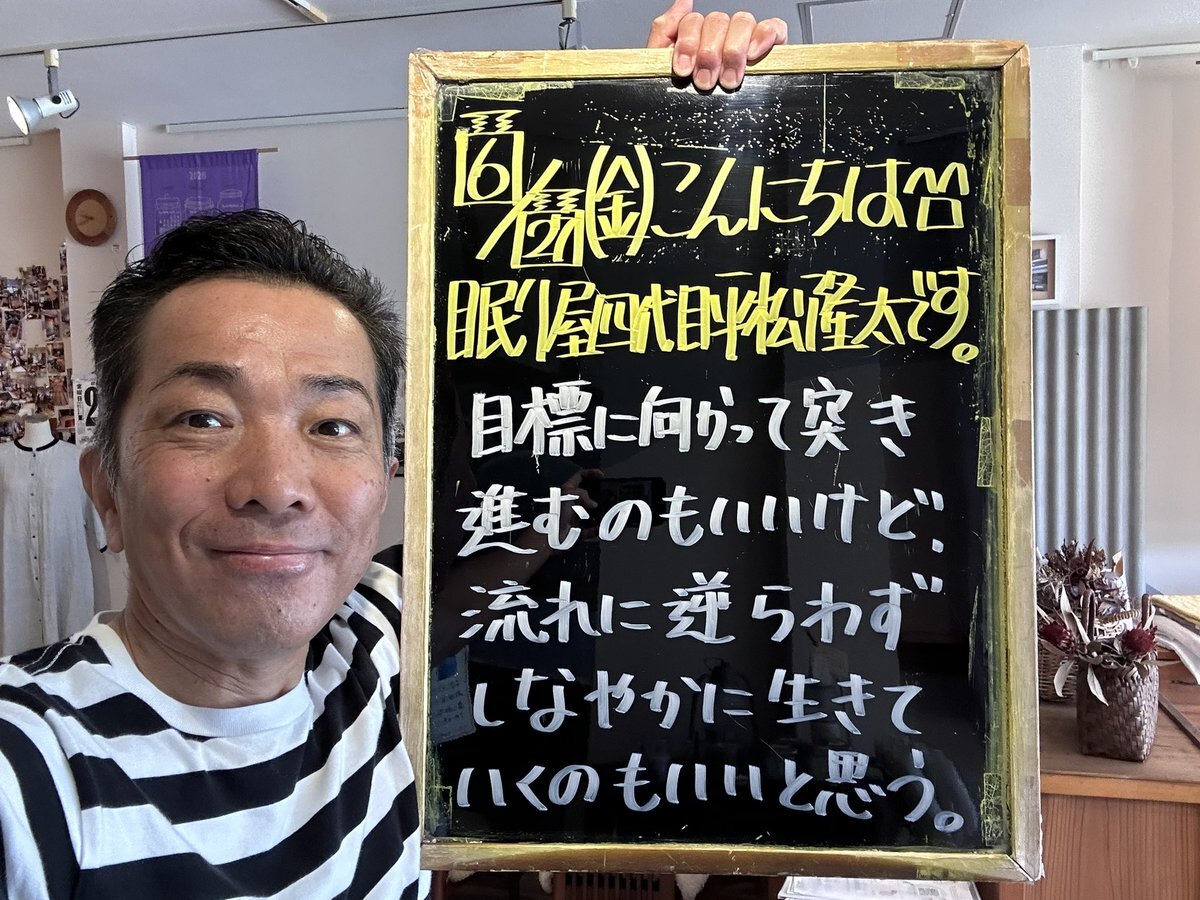 6/12(金)こんにちは
眠り屋四代目平松隆太です。
目標に向かって突き
進むのもいいけど、
流れに逆らわず
しなやかに生きて
いくのもいいと思う。
2026
2